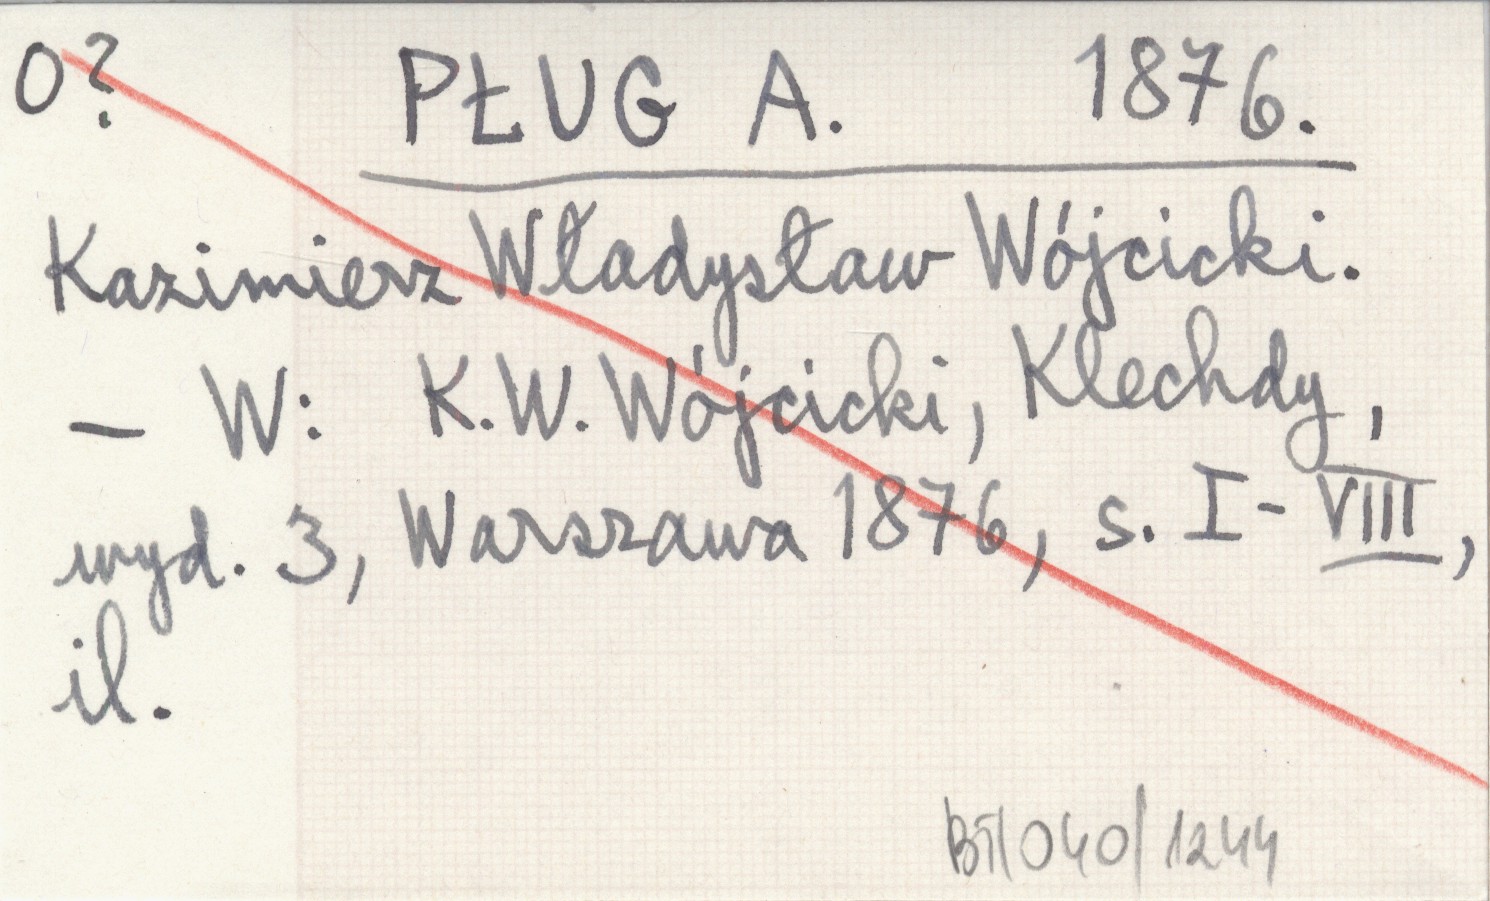 O? PŁUG A. 1876.
Kazimierz Władysław Wójcicki.
— W: K.W. Wójcicki, Klechdy,
wyd. 3, Warszawa 1876, s. I-VIII,
il.
BT/040/1244